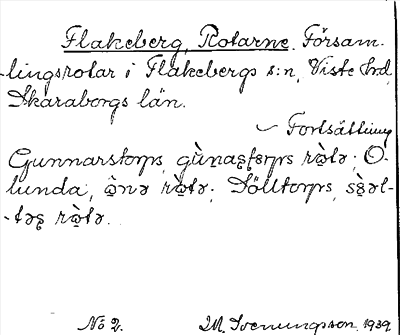 Flakeberg, Rotarne. Försam-
lingsrotar i Flakebergs s:n, Viste hd,
Skaraborgs län.
Fortsättning
Gunnarstorps, rò̤tə; O-
lunda, rò̤tə; Sölltorps,
rò̤tə.
No 2. M. Svenungsson. 1939